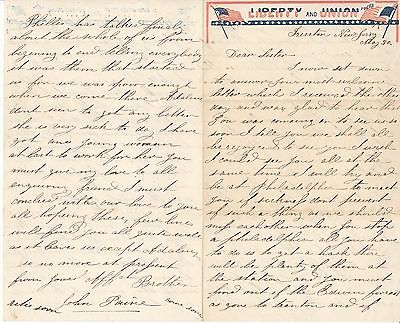 LIBERTY AND UNION
Trenton New Jersey
May 30
Dear Sister
I now set down
to answer your most welcome
letter which I received the other
day and was glad to hear that
You was coming on to see us so
soon I tell you we shall all
be rejoyced to see you I wish
I could see you all at the
same time I will try and
be at Philadelphia to meet
you if buisness dont prevent
if such a thing as we should
miss each other when you stop
a philadelphia all you have
to do is to get a hack there
will be plenty of them at
the station and you must
proceed out of the
as gone to trenton and if
has talked
about the whole of us from
begining to end telling everybody
it was them that started
us for we was poor enough
when we come there Adaline
dont seem to get any better
she is very sick to day I have
got one young woman
at last to work for her you
must give my love to all
enquiring friend I must
conclude with our love to you
all hopeing these few lines
will find you all quite well
as it leaves us except Adaline
so no more at present
from Your Afft Brother
John Paine
write soon